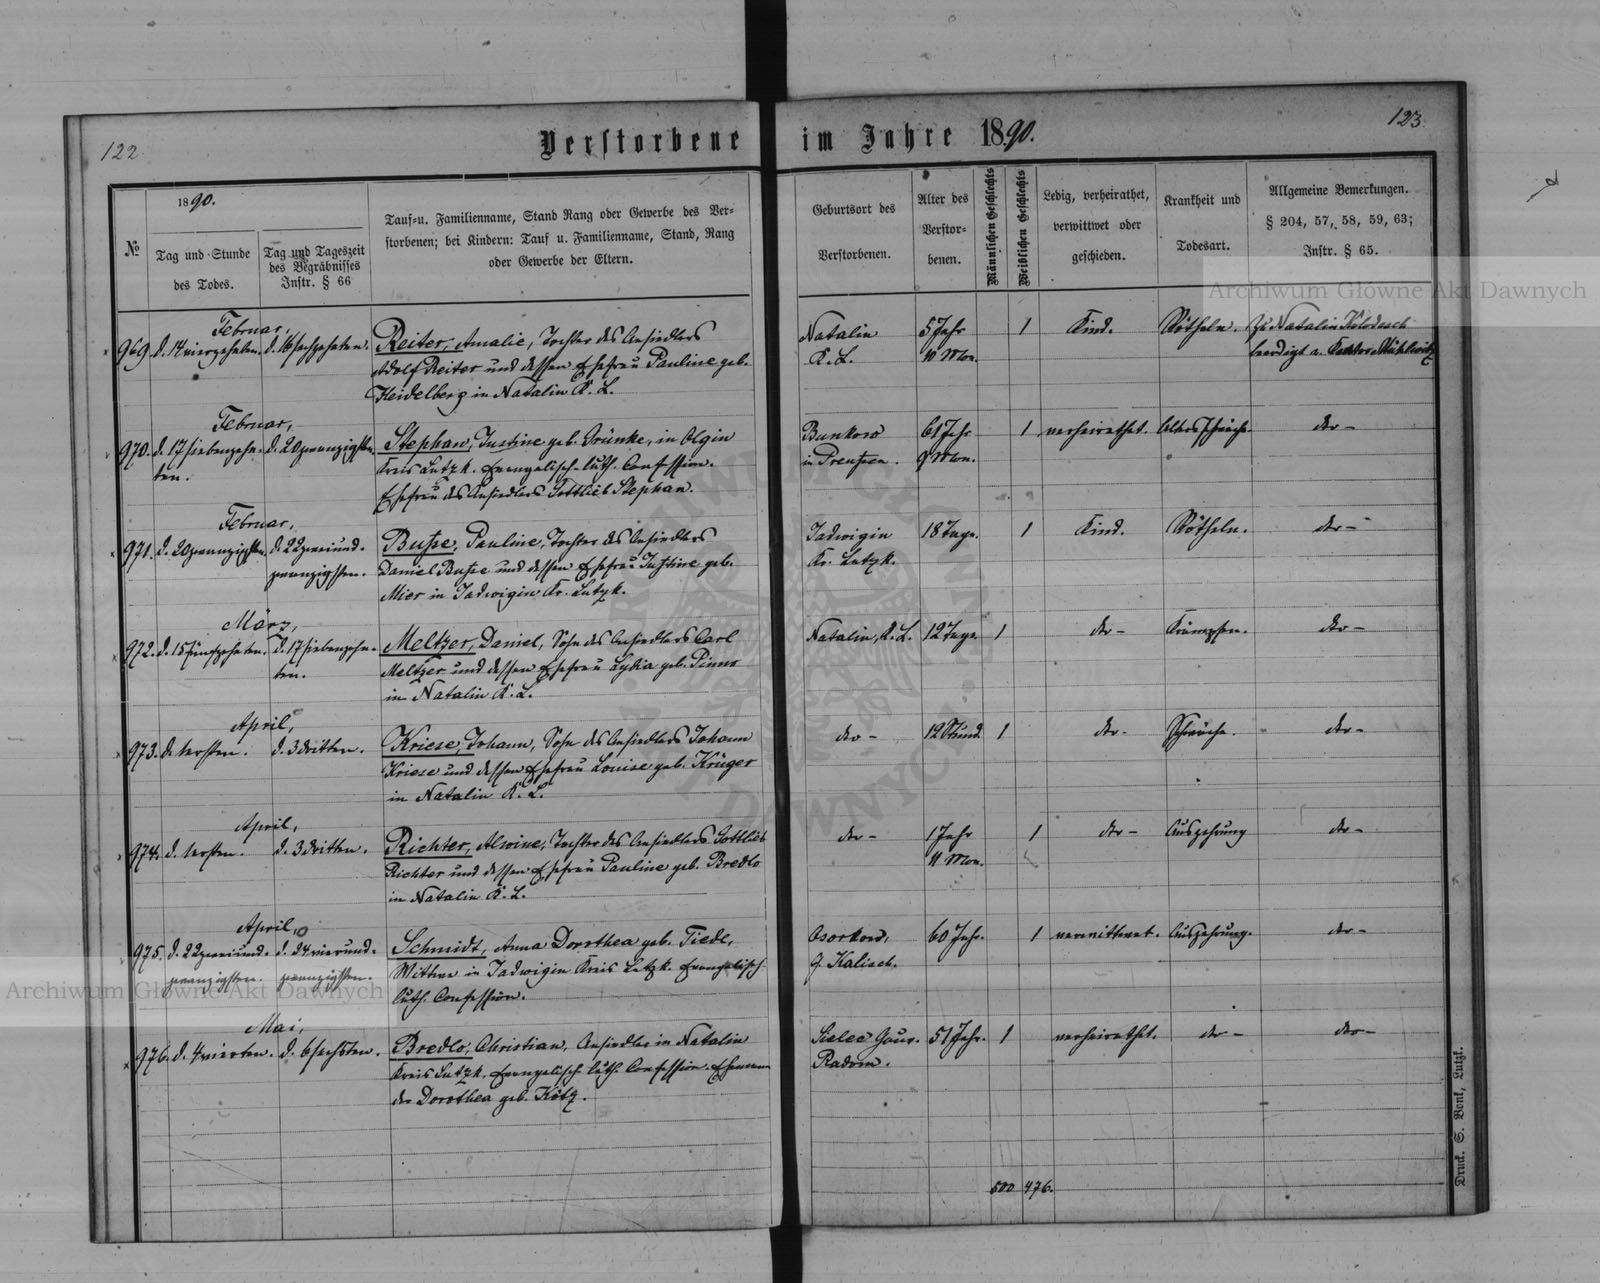 122
Verstorbene im Jahre 1890.
123
№
1890.
Tag und Stunde
des Todes.
Tag und Tageszeit
des Begräbnisses
Instr. § 66
Tauf=u. Familienname, Stand Rang oder Gewerbe des Ver=
storbenen; bei Kindern: Tauf u. Familienname, Stand, Rang
oder Gewerbe der Eltern.
Geburtsort des
Verstorbenen.
Alter des
Verstor-
benen.
Männlichen Geschlechts
Weiblichen Geschlechts
Ledig, verheirathet,
verwittwet oder
geschieden.
Krankheit und
Todesart.
Allgemeine Bemerkungen.
§ 204, 57, 58, 59, 63;
Instr. § 65.
Archiwum Główne Akt Dawnych
Februar,
969. d. 14 vierzehnten. d. 16 sechzehnten. Reiter, Amalie, Tochter des Ansiedlers
Adolf Reiter und dessen Ehefrau Pauline geb.
Heidelberg in Natalin K. L.
Natalin 5 Jahr 1 Kind. Rötheln. Zu Natalin
K. L. 10 Mon. beerdigt v. Kantor
Februar,
970. d. 17 siebenzehn- d. 20 zwanzigsten. Stephan, Justine geb. Grünke, in Olgin
ten. Kreis Lutzk. Evangelisch-luth. Confession.
Ehefrau des Ansiedlers Gottlieb Stephan.
Bunkow 61 Jahr 1 verheirathet. Altersschwäche. dto-
in Preußen. 9 Mon.
Februar,
971. d. 20 zwanzigsten. d. 22 zweiund- Buße, Pauline, Tochter des Ansiedlers
zwanzigsten. Daniel Buße und dessen Ehefrau Justine geb.
Mier in Jadwigin Kr. Lutzk.
Jadwigin 18 Tage. 1 Kind. Rötheln. dto-
Kr. Lutzk.
März,
972. d. 15 fünfzehnten. d. 17 siebenzehn- Meltzer, Daniel, Sohn des Ansiedlers Carl
ten. Meltzer und dessen Ehefrau Lydia geb.
in Natalin K. L.
Natalin, K. L. 12 Tage 1 dto- Krämpfen. dto-
April,
973. d. 1 ersten. d. 3 dritten. Kriese, Johann, Sohn des Ansiedlers Johann
Kriese und dessen Ehefrau Louise geb. Krüger
in Natalin K. L.
dto- 12 Stund. 1 dto- Schwäche. dto-
April,
974. d. 1 ersten. d. 3 dritten. Richter, Alwine, Tochter des Ansiedlers Gottlieb
Richter und dessen Ehefrau Pauline geb. Bredlo
in Natalin K. L.
dto- 1 Jahr 1 dto- Auszehrung dto-
11 Mon.
April,
975. d. 22 zweiund- d. 24 vierund- Schmidt, Anna Dorothea geb. Tiede,
zwanzigsten. zwanzigsten. Wittwe in Jadwigin Kreis Lutzk. Evangelisch
luth. Confession.
Osorkow, 60 Jahr. 1 verwittwet. Auszehrung. dto-
G. Kalisch.
Archiwum Główne Akt Dawnych
Mai,
976. d. 4 vierten. d. 6 sechsten. Bredlo, Christian, Ansiedler in Natalin
Kreis Lutzk. Evangelisch luth. Confession. Ehemann
der Dorothea geb. Kötz.
Sielec Gouv. 51 Jahr. 1 verheirathet. dto- dto-
Radom.
500 476.
Druck. S. Bonk, Lutzk.